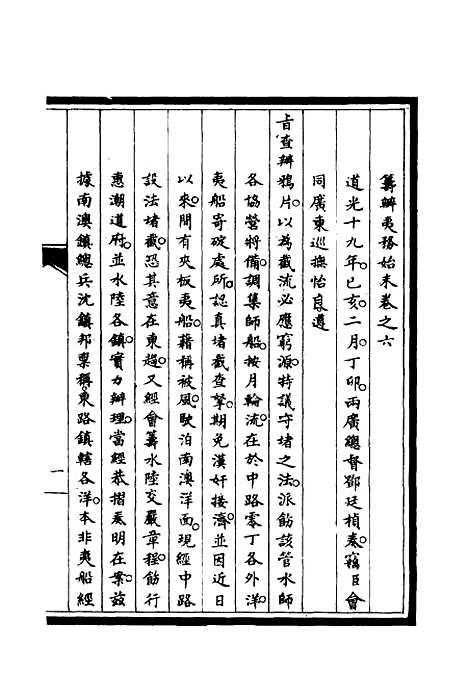 籌辦夷務始末卷之六
道光十九年。己亥。二月。丁卯。兩廣總督鄧廷楨奏。竊臣會
同廣東巡撫怡良遵
旨查辦鴉片。以為截流必應窮源。特議守堵之法。派飭該管水師
各協營將備。調集師船。按月輪流。在於中路零丁各外洋
夷船寄碇處所。認真堵截查拏。期免漢奸接濟。並因近日
以來。間有夾板夷船。藉稱被風。駛泊南澳洋面。現經中路
設法堵截。恐其意在東趨。又經會籌水陸交嚴章程。飭行
惠潮道府。並水陸各鎮。實力辦理。當經恭摺奏明在案。茲
據南澳鎮總兵沈鎮邦稟稱。東路鎮轄各洋。本非夷船經
一